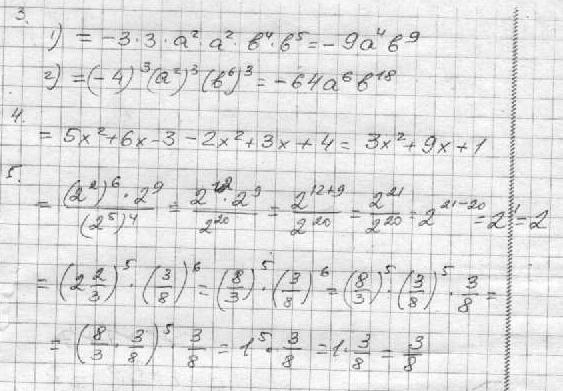 3.
1) = -3·3·a²·a²·b⁴·b⁵ = -9a⁴b⁹
2) = (-4)³(a²)³(b⁶)³ = -64a⁶b¹⁸
4.
= 5x²+6x-3-2x²+3x+4 = 3x²+9x+1
5.
= (2²)⁶·2⁹/(2⁵)⁴ = 2¹²·2⁹/2²⁰ = 2¹²⁺⁹/2²⁰ = 2²¹/2²⁰ = 2²¹⁻²⁰ = 2¹ = 2
= (2 2/3)⁵·(3/8)⁶ = (8/3)⁵·(3/8)⁶ = (8/3)⁵·(3/8)⁵·3/8 =
= (8/3·3/8)⁵·3/8 = 1⁵·3/8 = 1·3/8 = 3/8